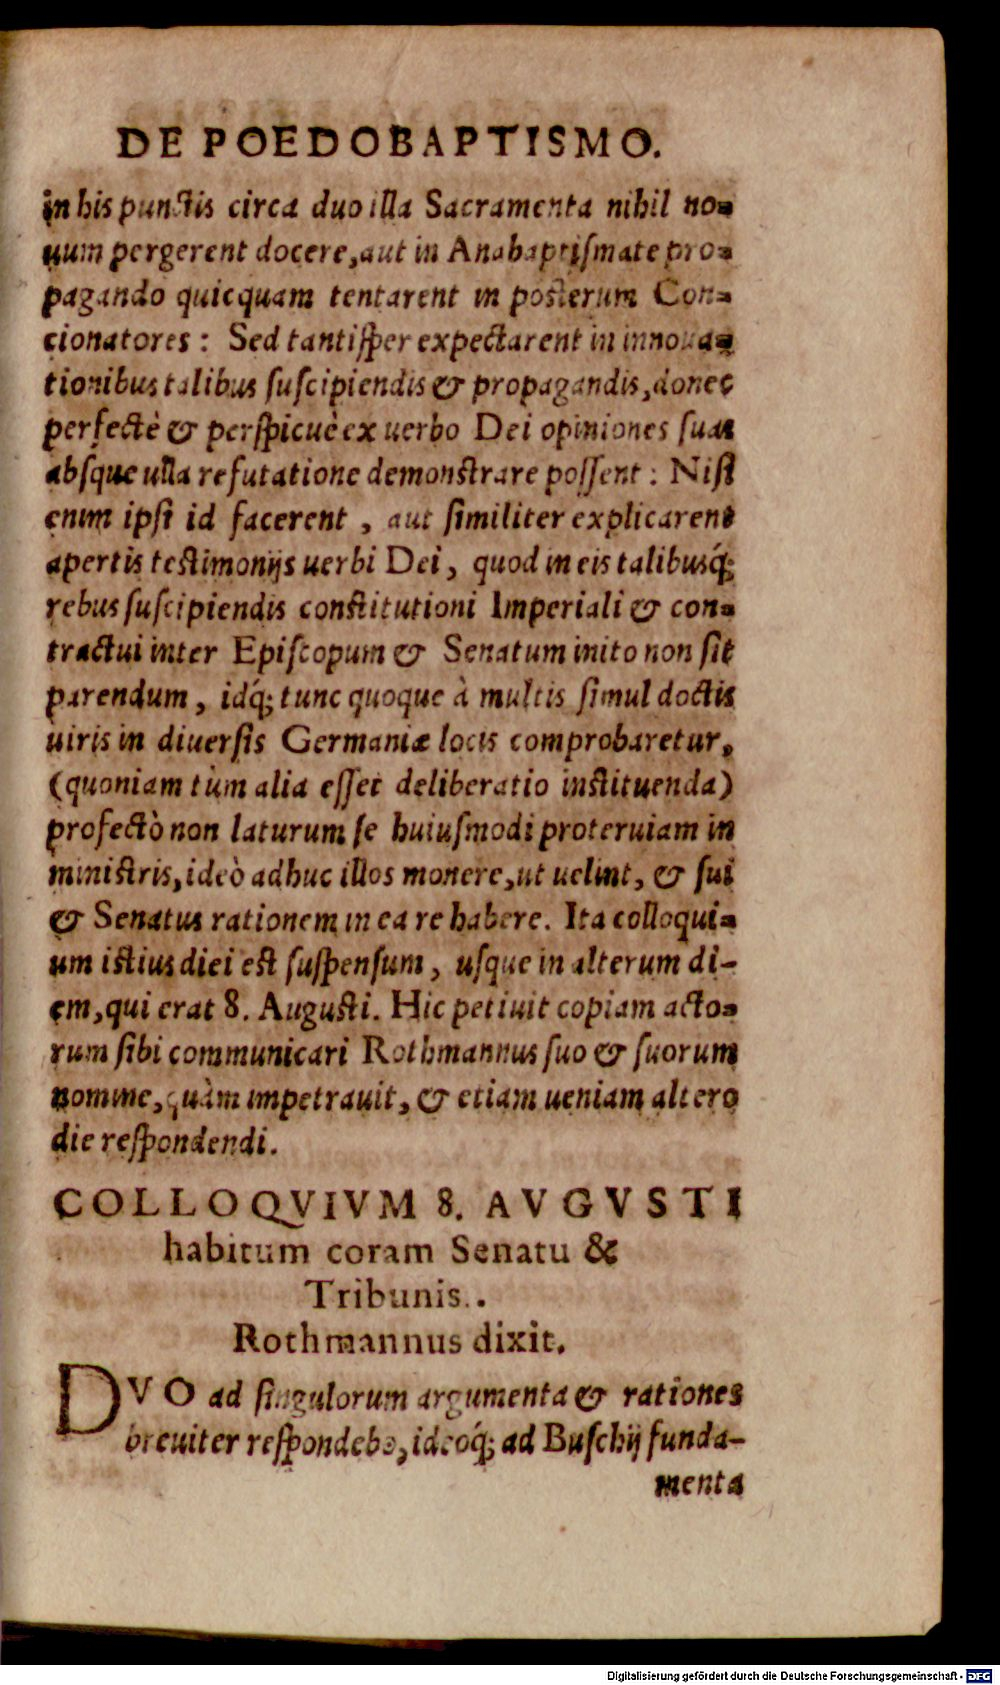 DE POEDOBAPTISMO.
in his punctis circa duo illa Sacramenta nihil no-
uum pergerent docere, aut in Anabaptiſmate pro-
pagando quicquam tentarent in poſterum Con-
cionatores: Sed tantiſper expectarent in innoua-
tionibus talibus ſuſcipiendis & propagandis, donec
perfectè & perſpicuè ex uerbo Dei opiniones ſuas
abſque ulla refutatione demonſtrare poſſent: Niſi
enim ipſi id facerent, aut ſimiliter explicarent
apertis teſtimonijs uerbi Dei, quod in eis talibusq́;
rebus ſuſcipiendis conſtitutioni Imperiali & con-
tractui inter Epiſcopum & Senatum inito non ſit
parendum, idq́; tunc quoque à multis ſimul doctis
uiris in diuerſis Germaniæ locis comprobaretur,
(quoniam tùm alia eſſet deliberatio inſtituenda)
profectò non laturum ſe huiuſmodi proteruiam in
miniſtris, ideò adhuc illos monere, ut uelint, & ſui
& Senatus rationem in ea re habere. Ita colloqui-
um iſtius diei eſt ſuſpenſum, uſque in alterum di-
em, qui erat 8. Auguſti. Hic petiuit copiam acto-
rum ſibi communicari Rothmannus ſuo & ſuorum
nomine, quàm impetrauit, & etiam ueniam altero
die reſpondendi.
COLLOQVIVM 8. AVGVSTI
habitum coram Senatu &
Tribunis..
Rothmannus dixit.
DVO ad ſingulorum argumenta & rationes
breuiter reſpondebo, ideoq́; ad Buſchij funda-
menta
Digitalisierung gefördert durch die Deutsche Forschungsgemeinschaft - DFG